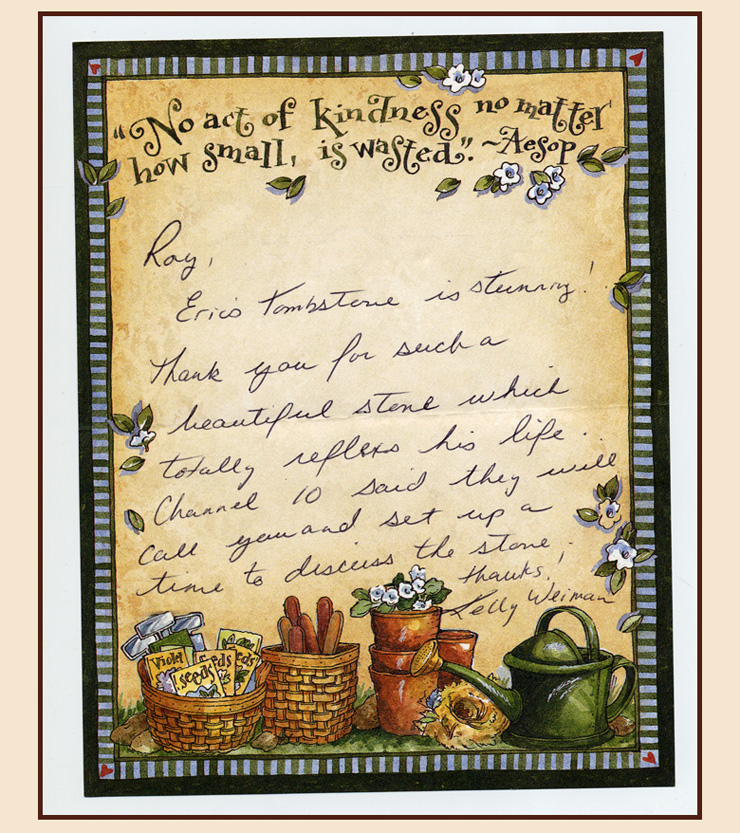 "No act of kindness no matter
how small, is wasted". ~Aesop
Roy,
Eric's Tombstone is stunning!
Thank you for such a
beautiful stone which
totally reflexs his life.
Channel 10 said they will
call you and set up a
time to discuss the stone.
Thanks,
Kelly Weiman
Violet
seeds
eds
eds